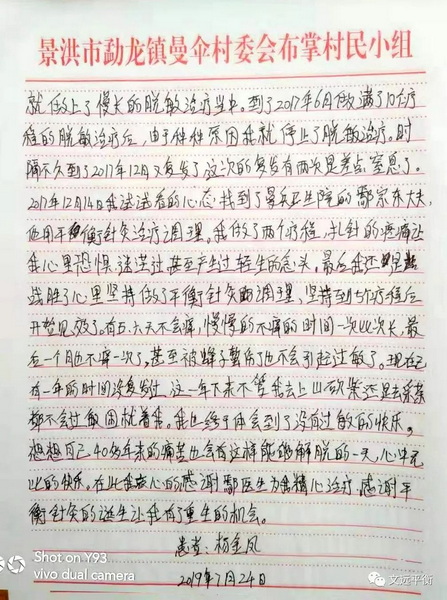 景洪市勐龙镇曼伞村委会布掌村民小组
就做上了慢长的脱敏治疗当中。到了2017年6月做满了10个疗
程的脱敏治疗后,由于种种原因我就停止了脱敏治疗。时
隔不久到了2017年12月又复发了这次的复发有两次是差点窒息了。
2017年12月14日我试试看的心态,找到了景兵卫生院的鄢宗东大夫,
他用平衡针灸治疗调理。我做了两个疗程,扎针的疼痛让
我心里恐惧,迷茫过甚至产生过轻生的念头,最后我还是
战胜了心里坚持做了平衡针灸的调理,坚持到5个疗程后
开始见效了。有五、六天不会痒,慢慢的不痒的时间一次比一次长,最
后一个月也不痒一次了,甚至被蜂子蜇伤了也不会引起过敏了。现在已
有一年的时间没复发过,这一年下来不管我去上山砍柴还是去采茶
都不会过敏困扰着我。我也终于体会到了没有过敏的快乐。
想想自己40多年来的痛苦也会有这样能够解脱的一天,心中无
比的快乐。在此我衷心的感谢鄢医生为我精心治疗,感谢平
衡针灸的诞生让我有了重生的机会。
患者:杨金凤
2019年7月24日
Shot on Y93
vivo dual camera
文远平衡